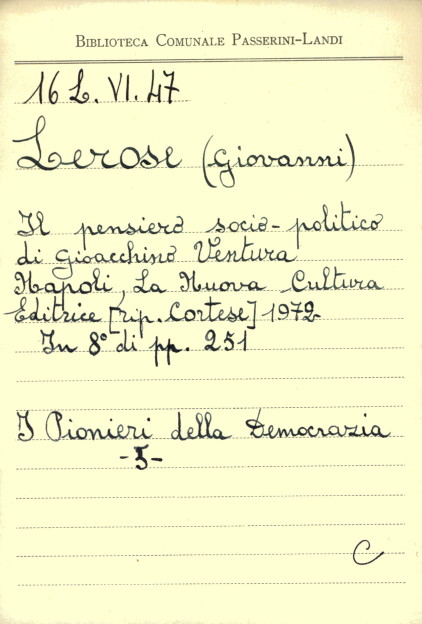 BIBLIOTECA COMUNALE PASSERINI-LANDI
16 L. VI. 47
Lerose (Giovanni)
Il pensiero socio-politico
di Gioacchino Ventura
Napoli, La Nuova Cultura
Editrice [tip. Cortese] 1972
In 8° di pp. 251
I Pionieri della Democrazia
-5-
C